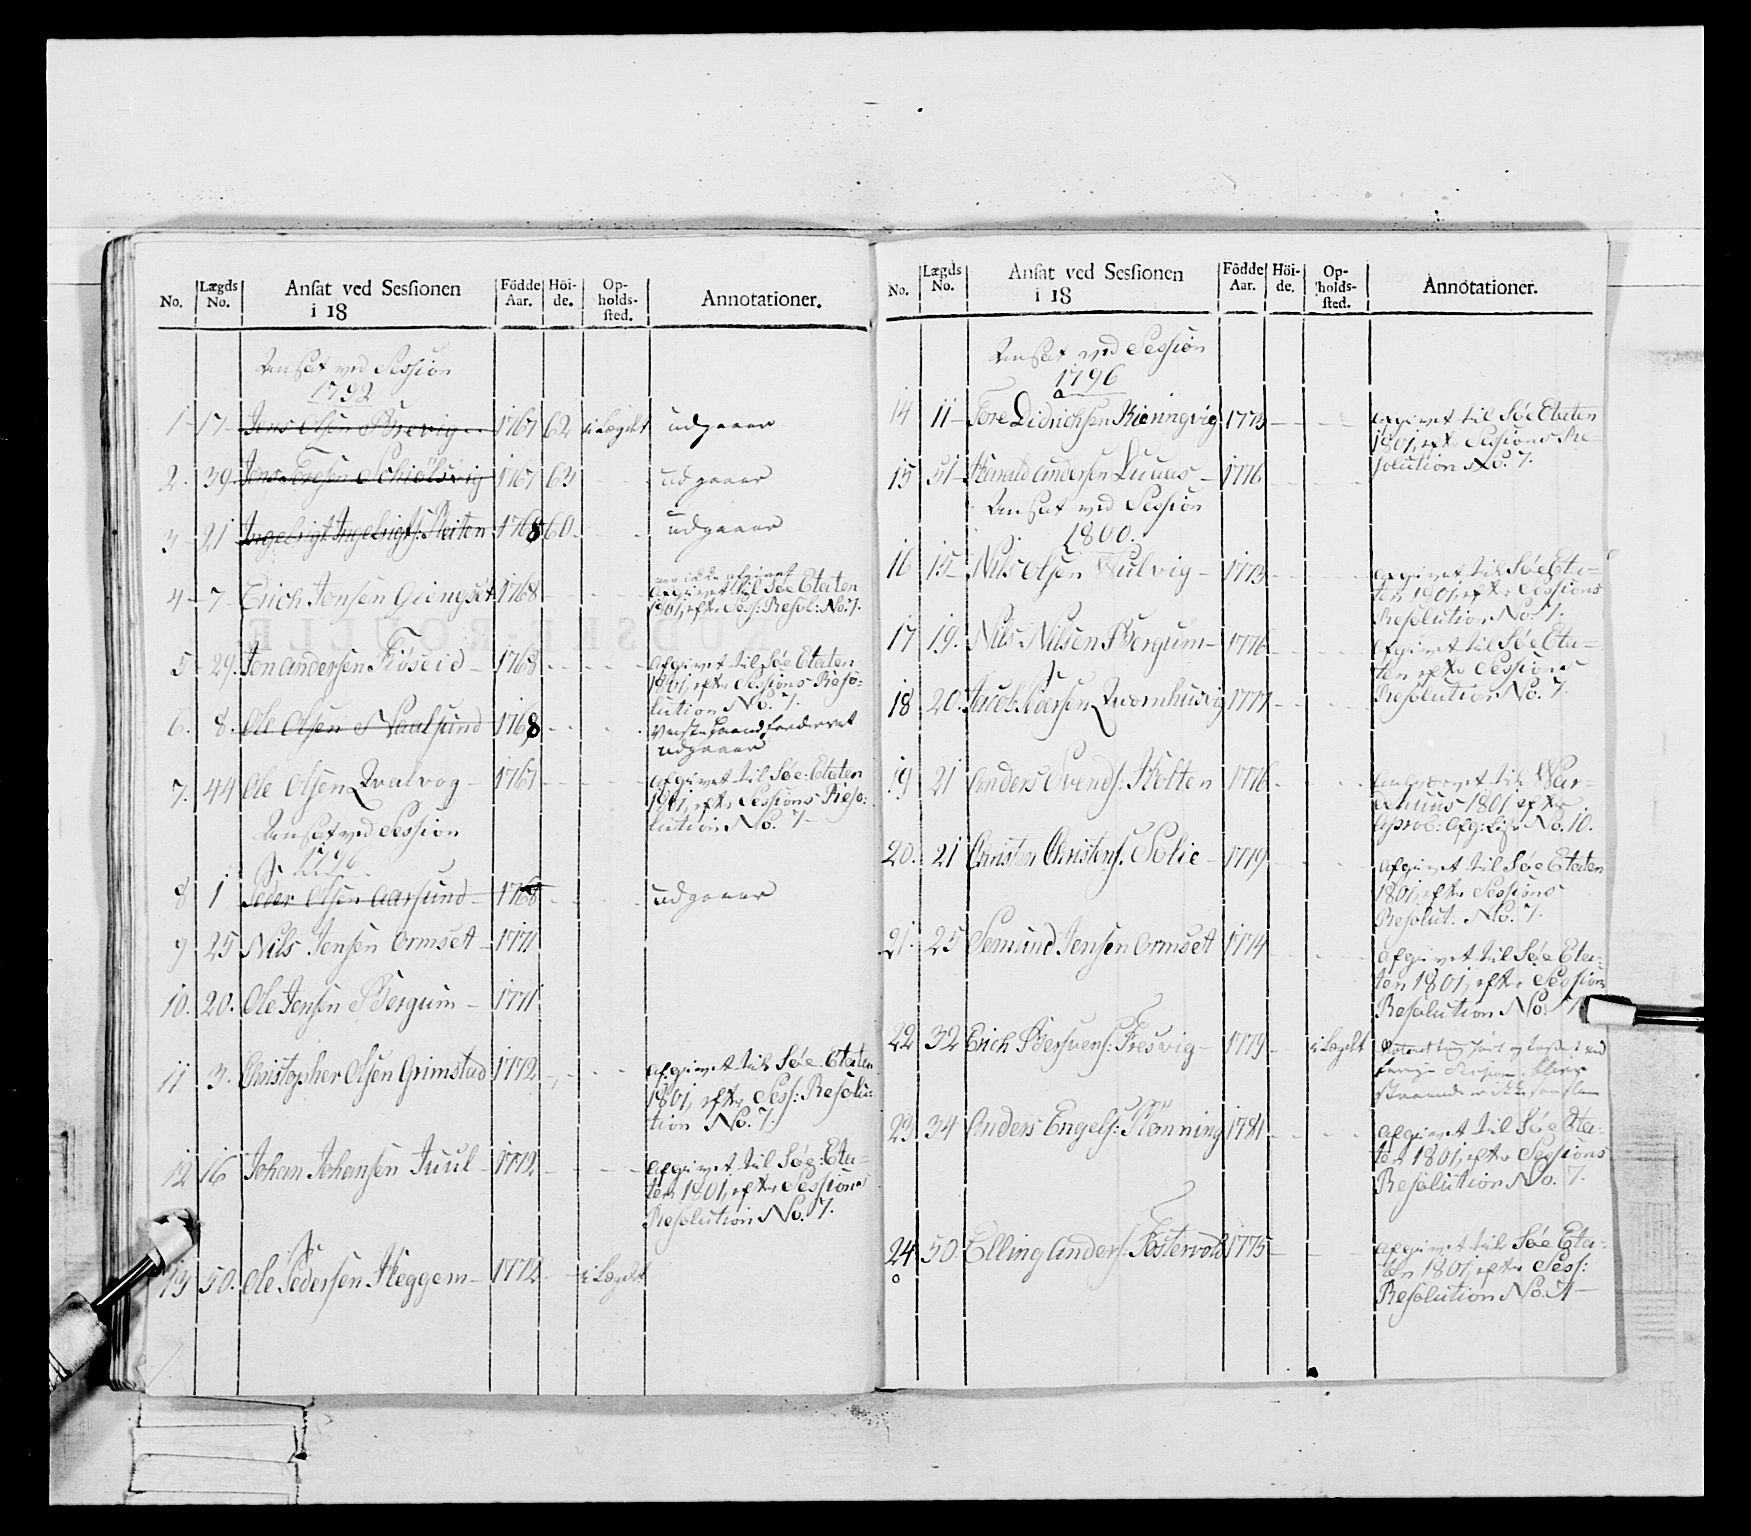 No. Lægds No. Ansat ved Sessionen i 18 Födde Aar. Höi-de. Op-holds-sted. Annotationer.
Ansat ved Session
1792
1 17 Jens Olsen Brevig 1767 62 i Lægdet udgaaer
2. 39 Jens Schiölsvig 1767 63 udgaaer
3 21 Ingebrigt Ingebrigts: Reiten 1768 60 udgaaer
4 7 Erich Jonsen Giengset 1768 afgivet til Søe Etaten
1801, efter Sess: Resol: No. 7.
5 29. Jon Andersen Fiöseid 1768 afgivet til Søe Etaten
1801, efter Sessions Reso-
lution No. 7.
6. 8. Ole Olsen 1768 Venstre Haand fordervet
udgaaer
7. 44 Ole Olsen Qvalvog 1767 afgivet til Søe Etaten
1801, efter Sessions Reso:
lution No. 7
Ansat ved Session
1796
8 1 Peder Olsen Aarsund 1768 udgaaer
9 25 Nils Jensen Ormset 1771
10. 20. Ole Jensen Bergum 1771
11 3. Christopher Olsen Grimstad 1772 afgivet til Søe Etaten
1801, efter Sess: Resolu-
tion No. 7.
12 16 Johan Johansen Juul 1772 afgivet til Søe: Eta-
ten 1801, efter Sessions
Resolution No. 7.
13 50. Ole Pedersen Heggem 1772 i Lægdet
No. Lægds No. Ansat ved Sessionen i 18 Födde Aar. Höi-de. Op-holds-sted. Annotationer.
Ansat ved Session
1796
14 11 Tore Didrichsen 1773 afgivet til Søe Etaten
1801, efter Sessions Re-
solution No. 7.
15 51 Harald Andersen 1776
Ansat ved Session
1800.
16 15 Nils Olsen Wulvig 1773 afgivet til Søe Eta-
ten 1801, efter Sessions
Resolution No. 7.
17 19. Nils Nilsen Bergum 1776 afgivet til Søe Eta-
ten efter Sessions
Resolution No. 7.
18 20. Jacob Pedersen Qvornhusvig 1777
19 21 Anders Svends: Holten 1776 til War-
1801 efter
No. 10.
20. 21 Christen Christens: Solie 1779 afgivet til Søe Etaten
1801, efter Sessions
Resolut. No. 7.
21. 25 Semund Jensen Ormset 1774 afgivet til Søe Eta-
ten 1801, efter Session
Resolution No. 7
22 32 Erich Bersvens: Fresvig 1779 i Lægdet
23 34 Anders Engels: Rønning 1781 afgivet til Søe Eta-
ten 1801, efter Sessions
Resolution No. 7.
24 50. Elling Anders: Fostervold 1775 afgivet til Søe Eta-
ten 1801, efter Sess:
Resolution No. 7